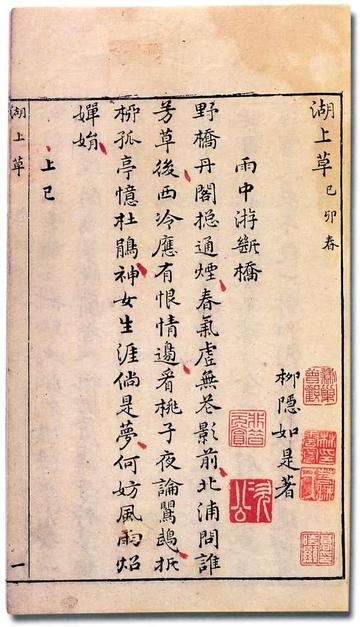 湖上草 己卯春
柳隱如是著
雨中游斷橋
野橋丹閣捴通煙春氣虛無花影前北浦問誰
芳草後西泠應有恨情邊看桃子夜論鸚鵡折
柳孤亭憶杜鵑神女生涯倘是夢何妨風雨炤
嬋娟
上巳
湖上草
一